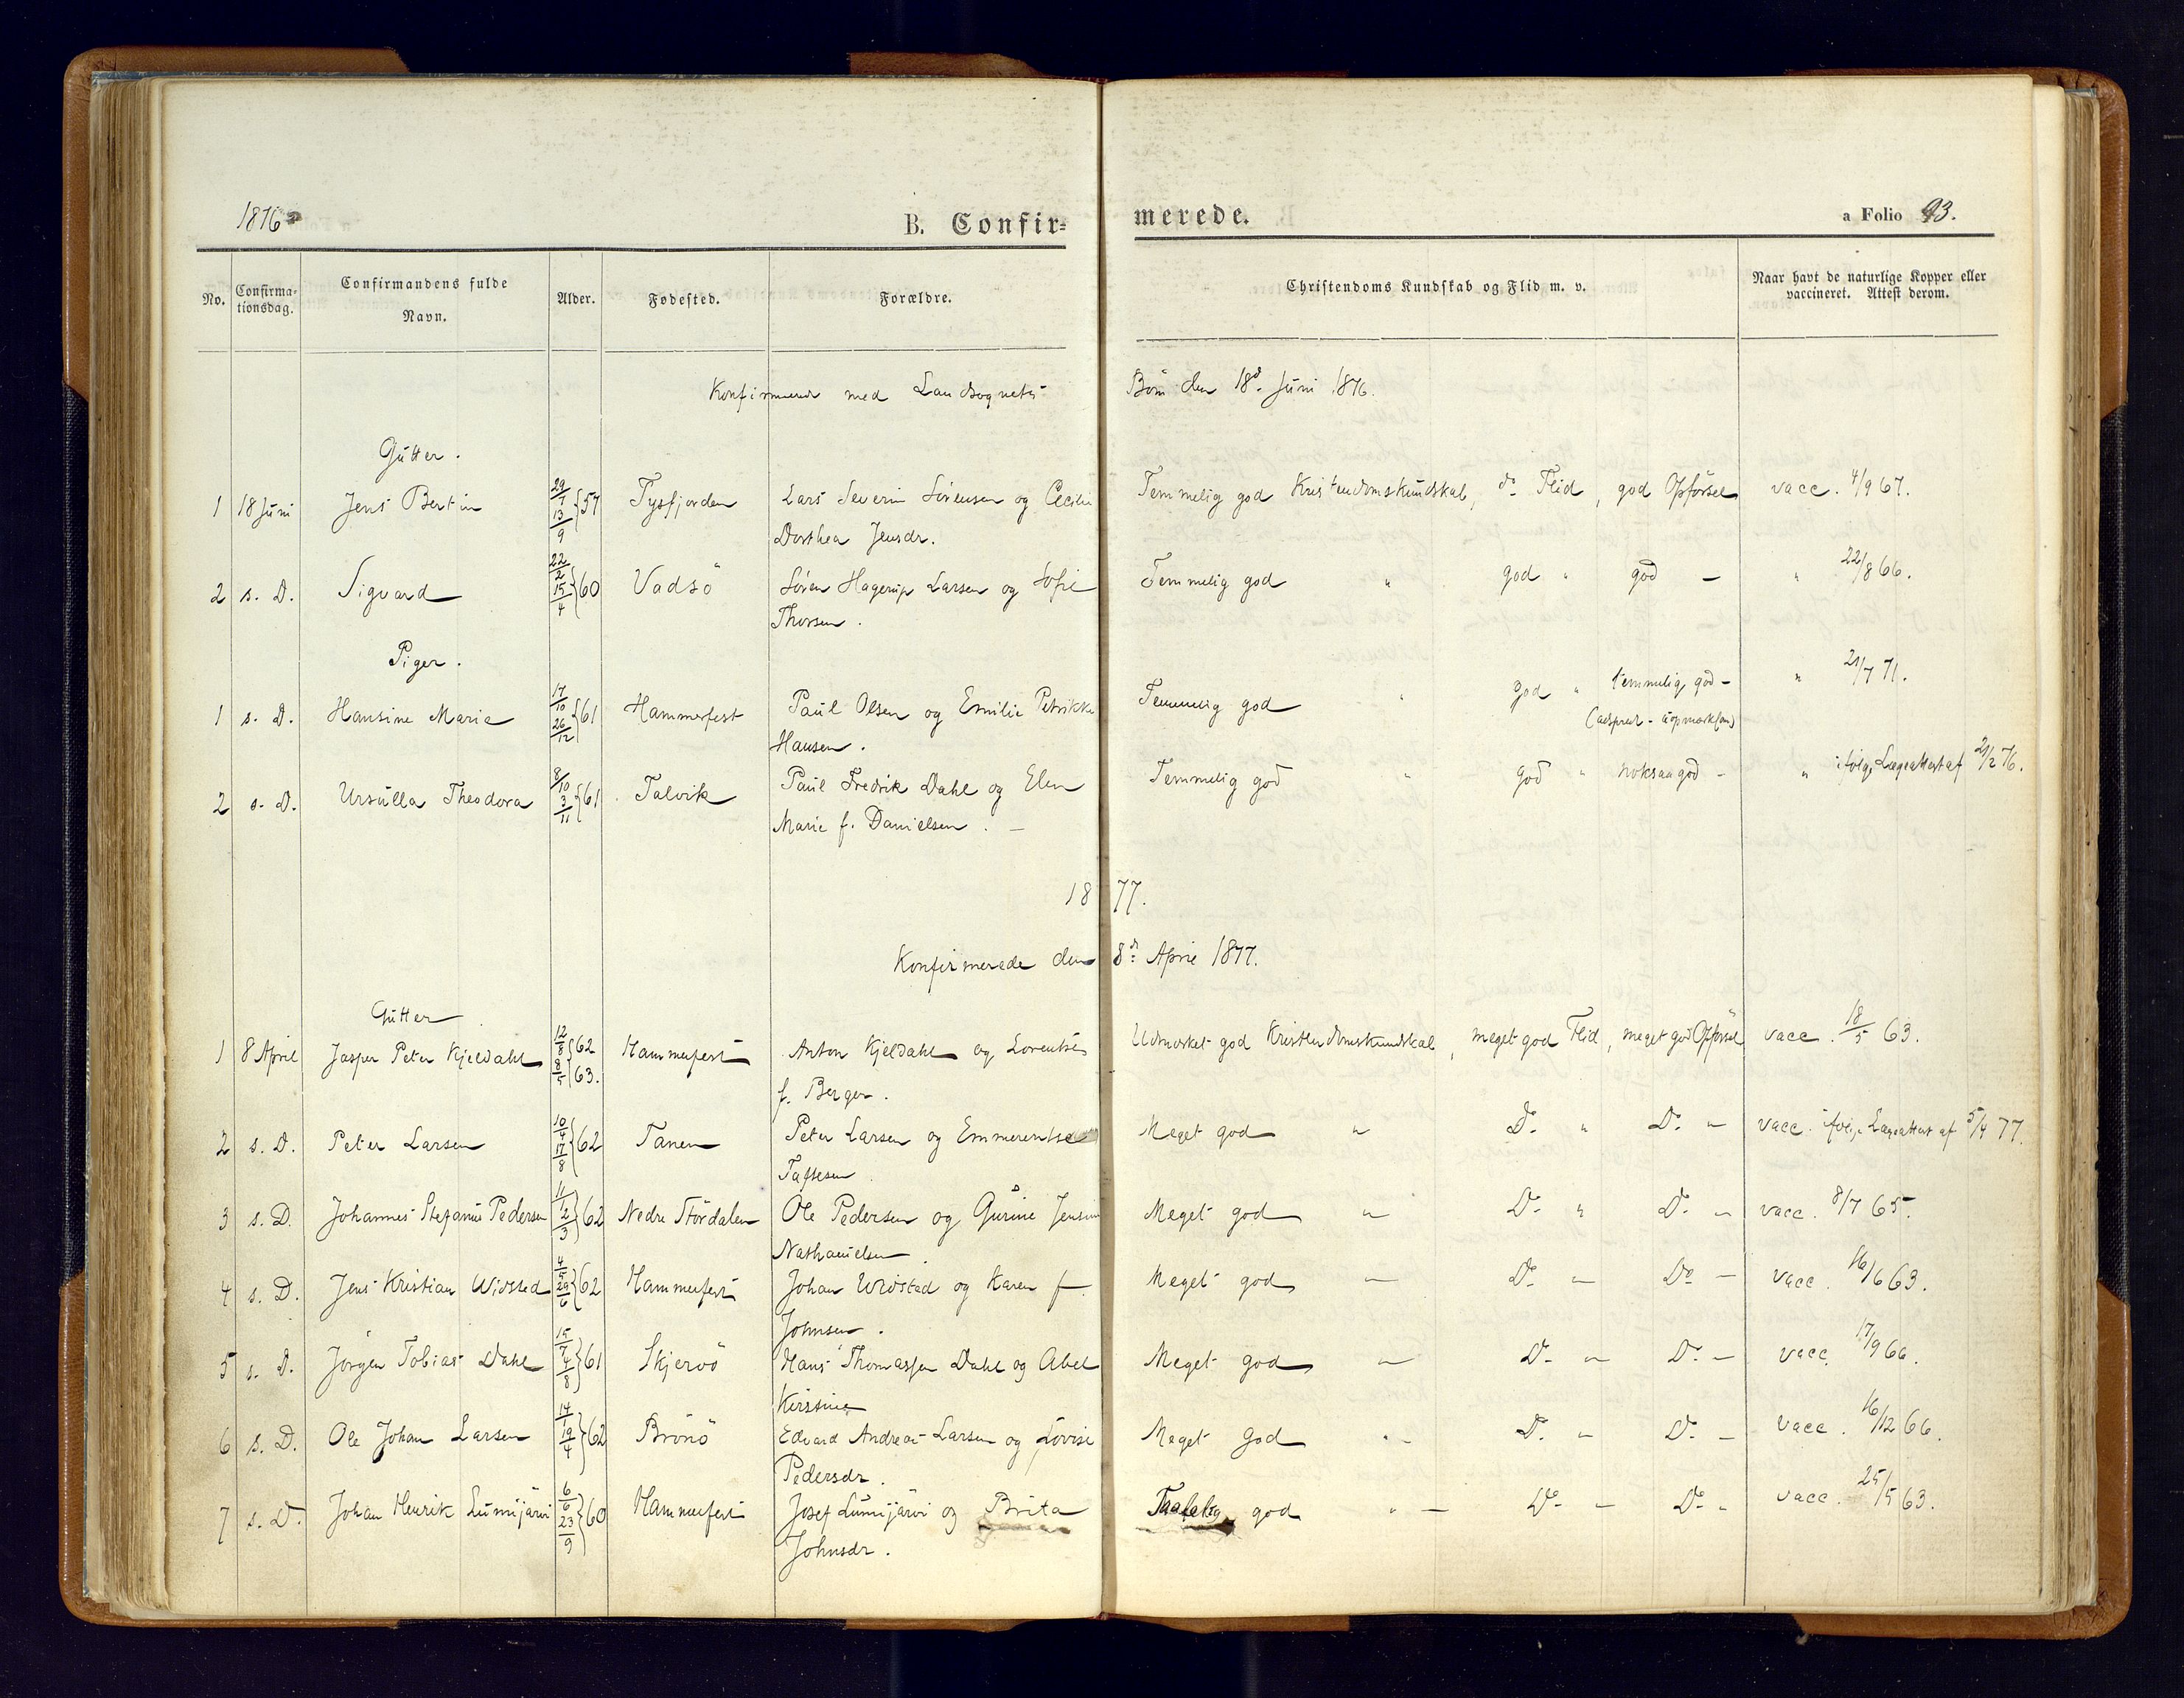 1876
B. Confirmerede.
a Folio 93.
No. Confirmationsdag. Confirmandens fulde Navn. Alder. Fødested. Forældre. Christendoms Kundskab og Flid m. v. Naar havt de naturlige Kopper eller vaccineret. Attest derom.
Konfirmerede med Landsognets Börn den 18d. Juni 1876.
Gutter.
1 18 Juni Jens Bertin 29/7 13/9 57 Tysfjorden Lars Severin Sörensen og Cecilie Temmelig god Kristendomskundskab, do Flid, god Opförsel vacc. 4/9 67.
Dorthea Jensdr.
2 s. D. Sigvard 22/2 15/4 60 Vadsö Sören Hagerup Larsen og Sofie Temmelig god " god " god — " 22/8 66.
Thorsen.
Piger.
1 s. D. Hansine Marie 17/10 26/12 61 Hammerfest Paul Olsen og Emilie Petrikke Temmelig god " god " temmelig god - " 21/7 71.
Hansen.
2 s. D. Ursulla Theodora 8/10 3/11 61 Talvik Paul Fredrik Dahl og Elen Temmelig god " god " noksaa god - " ifölge Lægeattest af 21/2 76.
Marie f. Danielsen. —
1877.
Konfirmerede den 8d April 1877.
Gutter
1 8 April Jasper Peter Kjeldahl 12/8 62 8/5 63. Hammerfest Anton Kjeldahl og Lorentse Udmærket god Kristendomskundskab, meget god Flid, meget god Opförsel vacc. 18/5 63.
f. Berger.
2 s. D. Peter Larsen 10/4 17/8 62 Tanen Peter Larsen og Emmerentse Meget god " Do " Do " vacc. ifölge Lægeattest af 5/4 77.
Tassesen
3 s. D. Johannes Stefanus Pedersen 11/1 2/3 62 Nedre Stördalen Ole Pedersen og Gurine Jensine Meget god " Do " Do " vacc. 8/7 65.
Nathanielsen.
4 s. D. Jens Kristian Widsted 4/5 29/6 62 Hammerfest Johan Widsted og Karen f. Meget god — Do — Do — vacc. 16/6 63.
Johnsen.
5 s. D. Jörgen Tobias Dahl 15/7 4/8 61 Skjervö Hans Thomassen Dahl og Abel Meget god — Do — Do — vacc. 17/9 66.
Kirstine
6 s. D. Ole Johan Larsen 14/1 19/4 62 Brönö Edvard Andreas Larsen og Lovise Meget god " Do — Do — vacc. 16/12 66.
Pedersdr.
7 s. D. Johan Henrik Lumijärvi 6/6 23/9 60 Hammerfest Josef Lumijärvi og Brita Taalelig god " — Do — Do " vacc. 25/5 63.
Johnsdr.